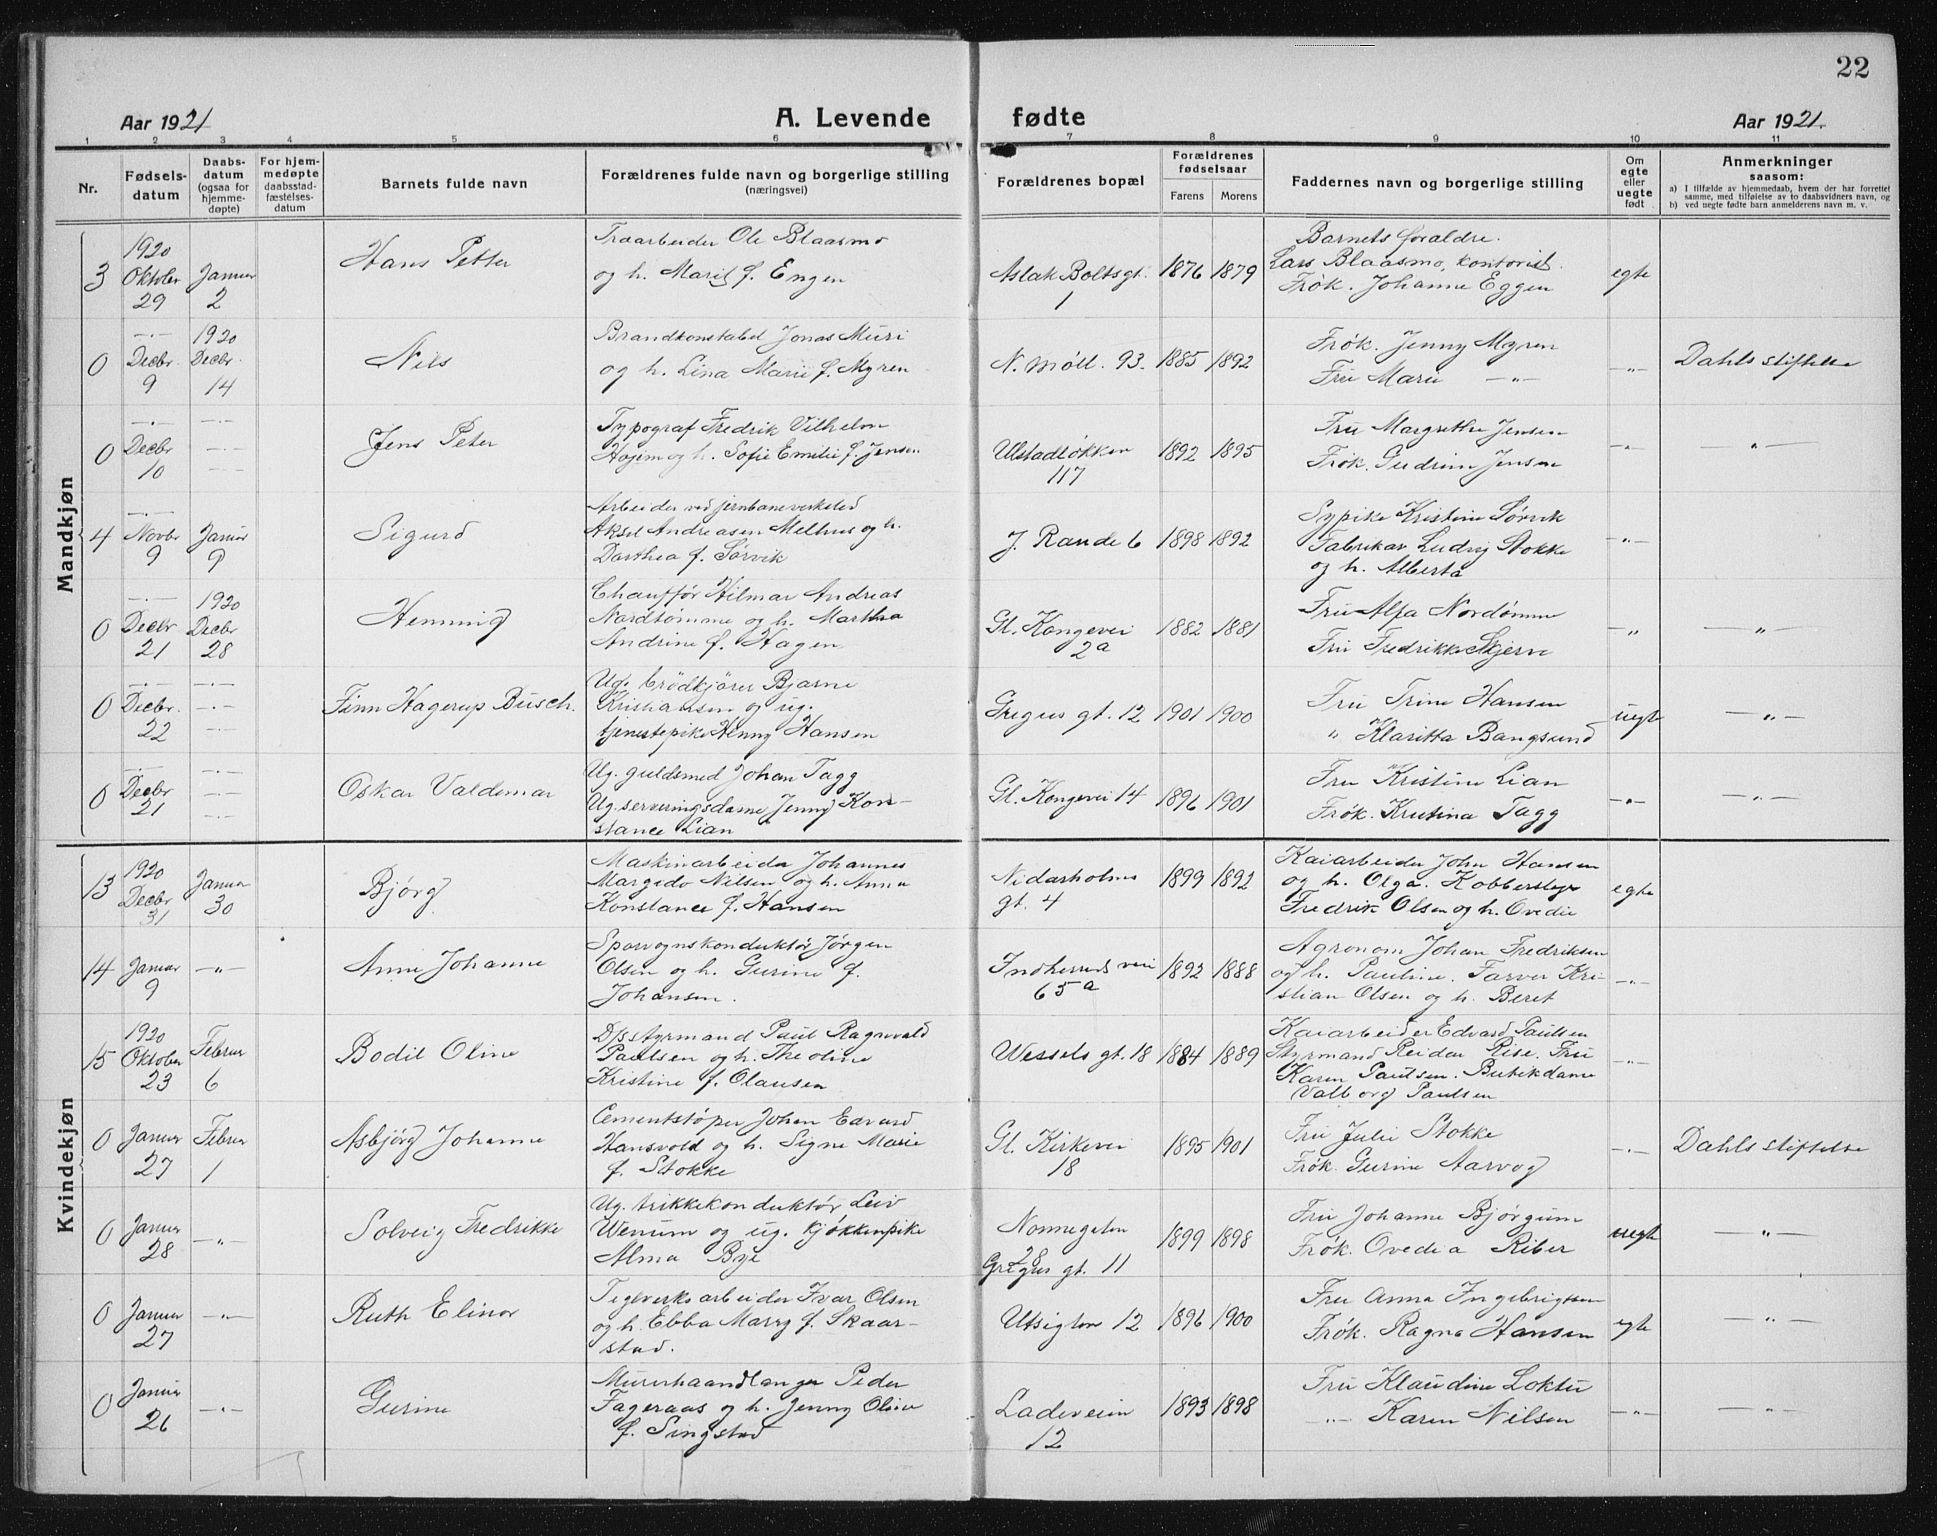 22
Aar 1921
A. Levende
fødte
Aar 1921.
1 2 3 4 5 6 7 8 9 10 11
Nr.
Fødsels-
datum
Daabs-
datum
(ogsaa for
hjemme-
døpte)
For hjem-
medøpte
daabsstad-
fæstelses-
datum
Barnets fulde navn
Forældrenes fulde navn og borgerlige stilling
(næringsvei)
Forældrenes bopæl
Forældrenes
fødselsaar
Farens Morens
Faddernes navn og borgerlige stilling
Om
egte
eller
uegte
født
Anmerkninger
saasom:
a) I tilfælde av hjemmedaab, hvem der har forrettet
samme, med tilføielse av to daabsvidners navn, og
b) ved uegte fødte barn anmelderens navn m. v.
Mandkjøn
3
1920
Oktober
29
Januar
2
Hans Petter
Træarbeider Ole Blaasmo
og h. Marit f. Engen
Aslak Boltsgt.
1
1876 1879
Barnets forældre.
Lars Blaasmo, kontorist.
Frøk. Johanne Eggen
egte
0
—.—
Decbr.
9
1920
Decbr.
14
Nils
Brandkonstabel Jonas Muri
og h. Lina Marie f. Myren
N. Møll. 93.
1885 1892
Frøk. Jenny Myren
Fru Marie —"—
—"—
Dahls stiftelse
0
—.—
Decbr
10
—.—
—.—
—.—
Jens Peter
Typograf Fredrik Vilhelm
Hojem og h. Sofie Emilie f. Jensen
Ulstadløkken
117
1892 1895
Fru Margrethe Jensen
Frøk. Gudrun Jensen
—"—
—"—
4
—.—
Novbr
9
Januar
9
Sigurd
Arbeider ved jernbaneverksted
Aksel Andreasen Melhus og h.
Dorthea f. Sørvik
J. Rande 6
1898 1892
Sypike Kristine Sørvik
Fabrikar Ludvig Stokke
og h. Alberta
—"—
0
—.—
Decbr
21
1920
Decbr
28
Henning
Chauffør Hilmar Andreas
Nordtømme og h. Martha
Andrine f. Hagen
Gl. Kongevei
2a
1882 1881
Fru Alfa Nordtømme
Fru Fredrikke Skjerve
—"—
—"—
0
—.—
Decbr.
22
—.—
—.—
—.—
Finn Hagerup Busch.
Ug. brødkjører Bjarne
Kristiansen og ug.
tjenestepike Henny Hansen
Gregus gt. 12
1901 1900
Fru Trine Hansen
" Klaritta Bangsund
uegte
—"—
0
—.—
Decbr
21
—.—
—.—
—.—
Oskar Valdemar
Ug. guldsmed Johan Tagg
Ug. serveringsdame Jenny Kon-
stance Lian
Gl. Kongevei 14
1896 1901
Fru Kristine Lian
Frøk. Kristina Tagg
—"—
—"—
Kvindekjøn
13
1920
Decbr
31
Januar
30
Bjørg
Maskinarbeider Johannes
Margido Nilsen og h. Anna
Konstance f. Hansen
Nidarholms
gt. 4
1899 1892
Kaiarbeider John Hansen
og h. Olga. Kobberslager
Fredrik Olsen og h. Ovedie
egte
14
Januar
9
—"—
Anne Johanne
Sporvognskonduktør Jørgen
Olsen og h. Gurine f.
Johansen.
Indherreds vei
65a
1892 1888
Agronom Johan Fredriksen
og h. Pauline. Farver Kri-
stian Olsen og h. Beret
—"—
15
1920
Oktober
23
Februar
6
Bodil Oline
D/sstyrmand Paul Ragnvald
Paulsen og h. Theoline
Kristine f. Olausen
Wessels gt. 18
1884 1889
Kaiarbeider Edvard Paulsen
Styrmand Reidar Rise. Fru
Karen Paulsen. Butikdame
Valborg Paulsen
—"—
0
Januar
27
Februar
1
Asbjørg Johanne
Cementstøper Johan Edvard
Hansvold og h. Signe Marie
f. Stokke
Gl. Kirkevei
18
1895 1901
Fru Julie Stokke
Frøk. Gurine Aarvog
—.—
Dahls stiftelse
0
Januar
28
—"—
Solveig Fredrikke
Ug. trikkekonduktør Leiv
Wenum og ug. kjøkkenpike
Alma Bye
Nonnegaten
28
Gregus gt. 11
1899 1898
Fru Johanne Bjørgum
Frøk. Ovedia Riber
uegte
—"—
0
Januar
27
—"—
Ruth Elinor
Teglverksarbeider Ivar Olsen
og h. Ebba Marry f. Skaar-
stad.
Utsigten 12
1896 1900
Fru Anna Ingebrigtsen
Frøk. Ragna Hansen
egte
—"—
0
Januar
26
—.—
Gurine
Murerhaandlanger Peder
Fageraas og h. Jenny Oline
f. Singstad
Ladeveien
12
1893 1898
Fru Klaudine Loktu
—"— Karen Nilsen
—"—
—"—